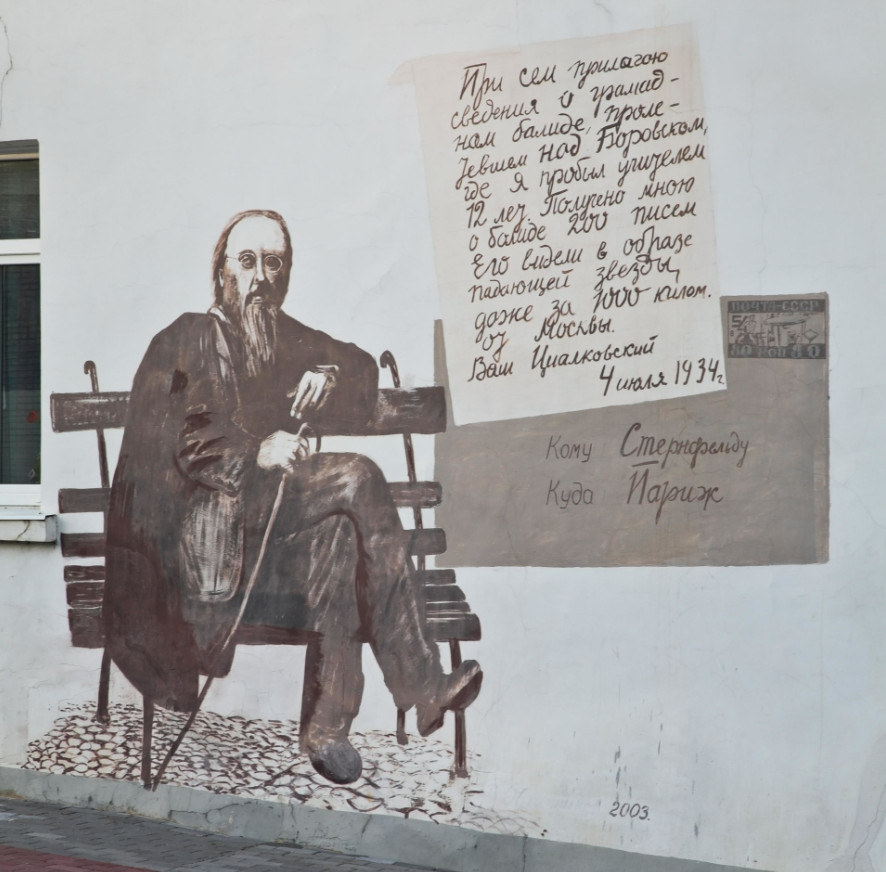 При сем прилагою
сведения о грамад-
нам балиде, проле-
тевшем над Боровском,
где я пробыл учителем
12 лет. Получено мною
о балиде 200 писем
Его видели в образе
падающей звезды,
даже за 1000 килом.
от Москвы.
Ваш Циалковский
4 июля 1934г.
ПОЧТА СССР
80 КОП 80
Кому Стернфельду
Куда Париж
2003.